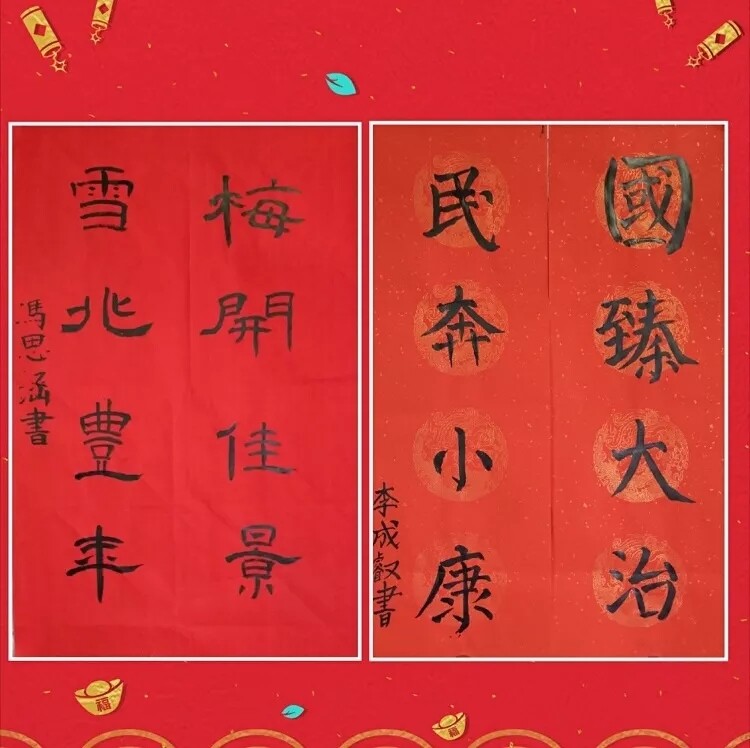 梅開佳景
雪兆豐年
馮思涵書
國臻大治
民奔小康
李成叡書
福
福